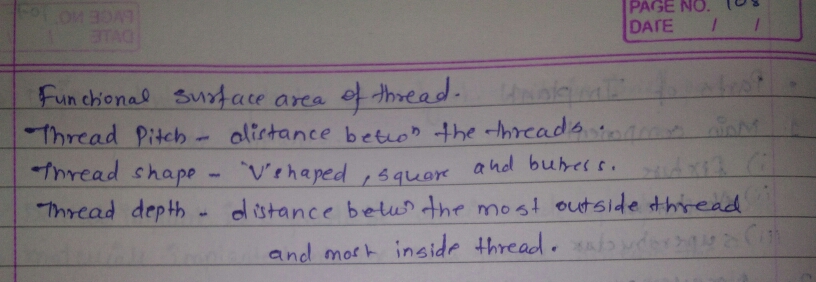 PAGE NO. 108
DATE / /
Functional surface area of thread.
Thread Pitch - distance betwn the threads.
Thread shape - 'V' shaped, square and buttress.
Thread depth - distance betwn the most outside thread
and most inside thread.